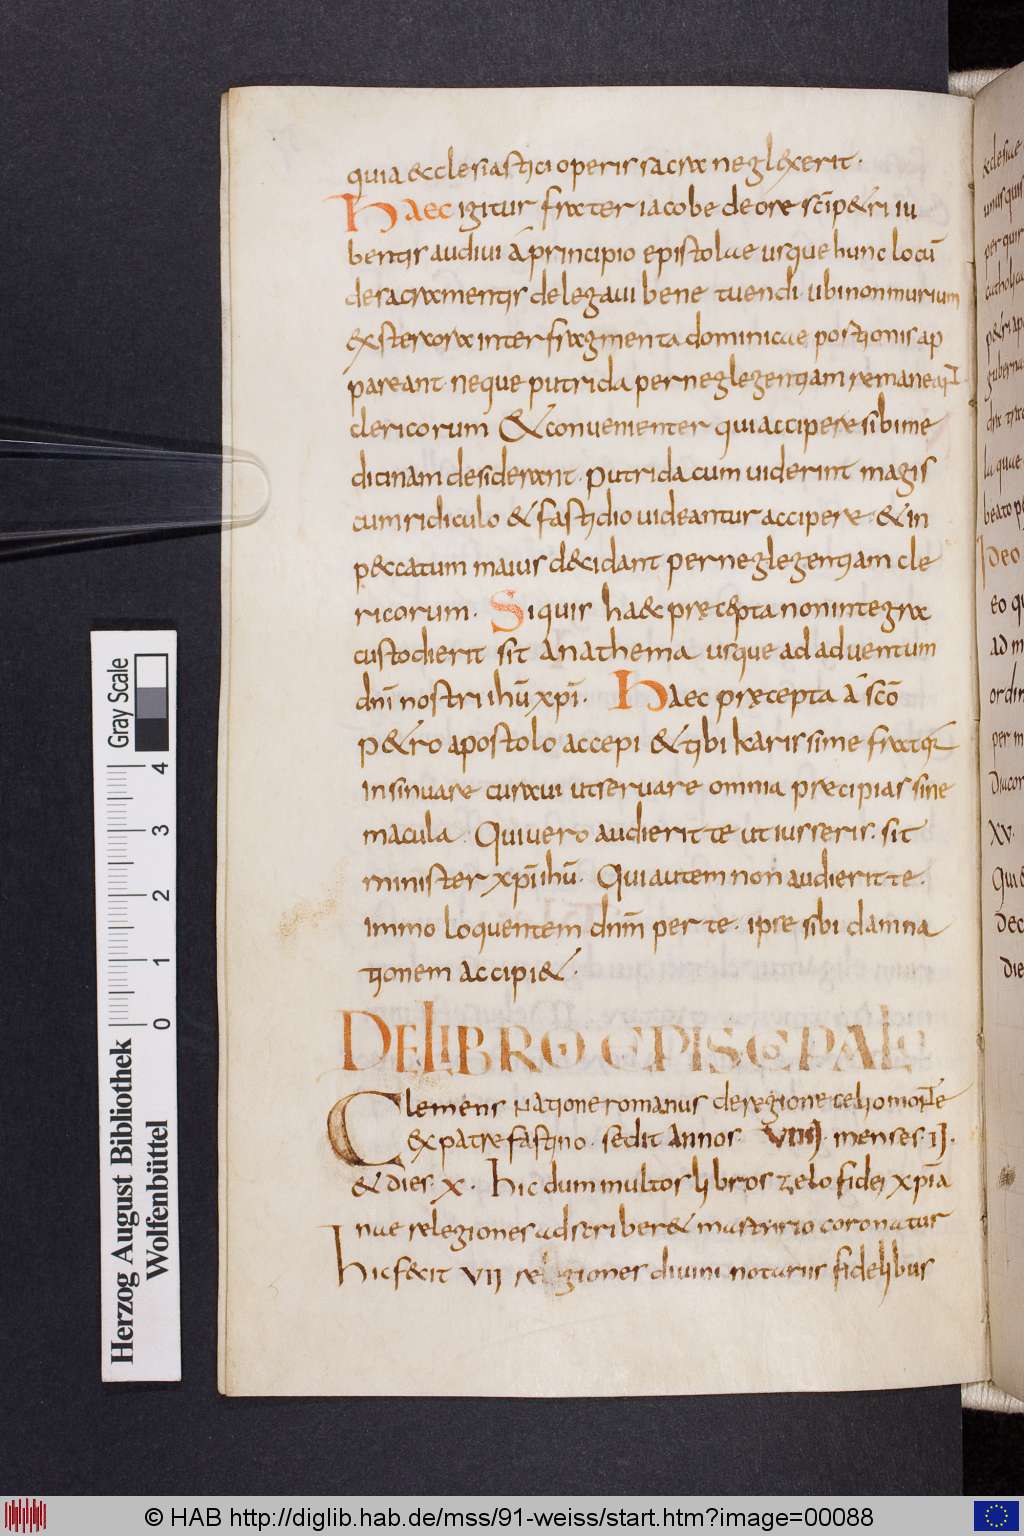 quia ecclesiastici operis sacra neglexerit.
Haec igitur frater iacobe de ore sc̄i petri iu
bentis audiui a principio epistolae usque hunc locū
de sacramentis delegaui bene tuendi. ubi non murium
extercora inter fragmenta dominicae portionis ap
pareant. neque putrida per neglegentiam remaneant
clericorum & conuenienter qui accipere sibi me
dicinam desiderant. Putrida cum uiderint magis
cum ridiculo & fastidio uideantur accipere. & in
peccatum maius decidant per neglegentiam cle
ricorum. Si quis haec praecepta non integra
custodierit sit anathema usque ad aduentum
dn̄i nostri ihū xpī. Haec praecepta a scō
petro apostolo accepi & tibi karissime frater
insinuare curaui ut seruare omnia praecipias sine
macula. Qui uero audierit te ut iusseris. sit
minister xpī ihū. Qui autem non audierit te.
immo loquentem dn̄m per te. ipse sibi damna
tionem accipiet.
DE LIBRO EPISCOPALE
Clemens natione romanus de regione celio monte
ex patre fastino. sedit annos. VIIII. menses. II.
& dies. X. hic dum multos libros zelo fidei xp̄ia
nae relegiones adscriberet martyrio coronatur
hic fecit VII regiones diuini notariis fidelibus
Herzog August Bibliothek
Wolfenbüttel
0 1 2 3 4
Gray Scale
© HAB http://diglib.hab.de/mss/91-weiss/start.htm?image=00088